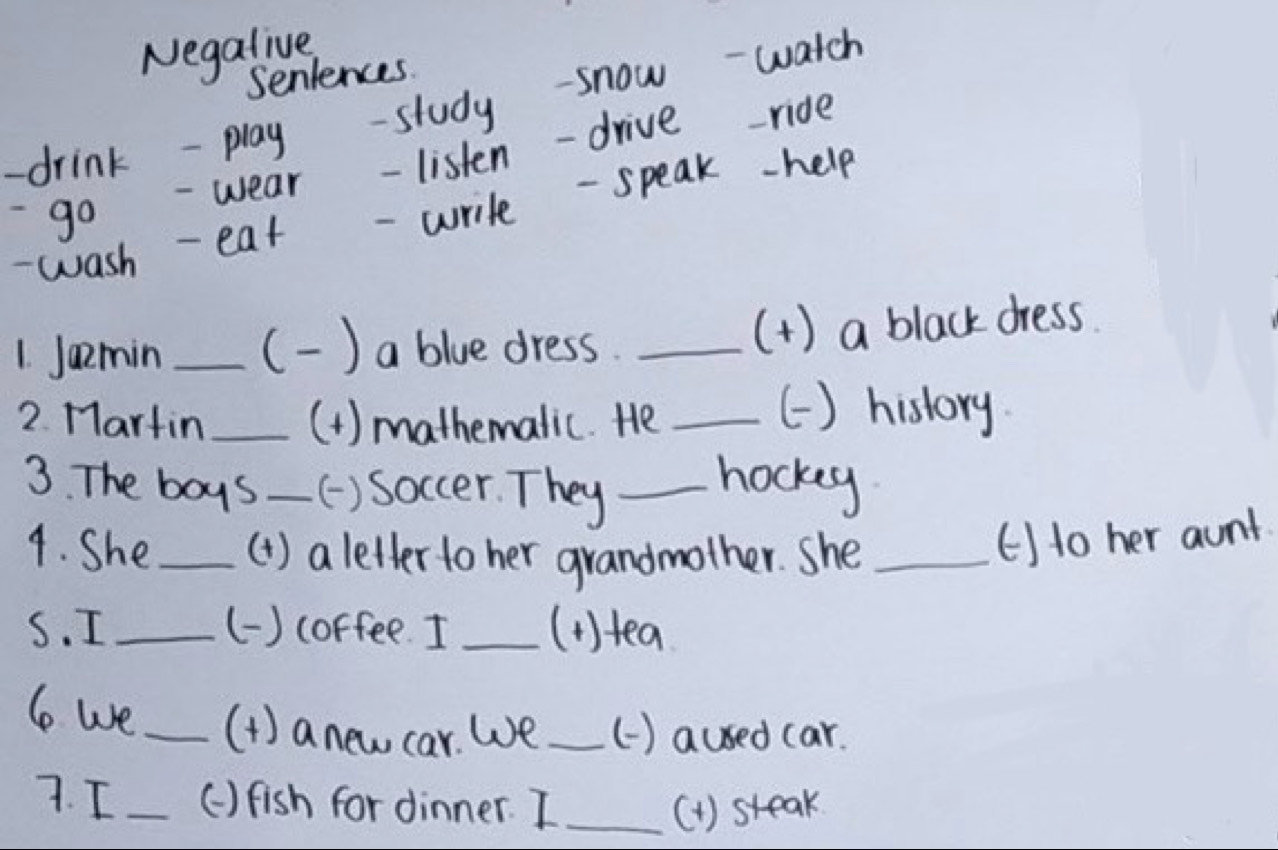 Negative
Sentences.
-drink - play -study -snow -watch
- go - wear - listen - drive -ride
-wash - eat - write - speak -help
1. Jazmin ___ (-) a blue dress. ___ (+) a black dress.
2. Martin ___ (+) mathematic. He ___ (-) history.
3. The boys ___ (-) Soccer. They ___ hockey.
4. She ___ (+) a letter to her grandmother. She ___ (-) to her aunt.
5. I ___ (-) coffee. I ___ (+) tea.
6. We ___ (+) a new car. We ___ (-) a used car.
7. I ___ (-) fish for dinner. I ___ (+) steak